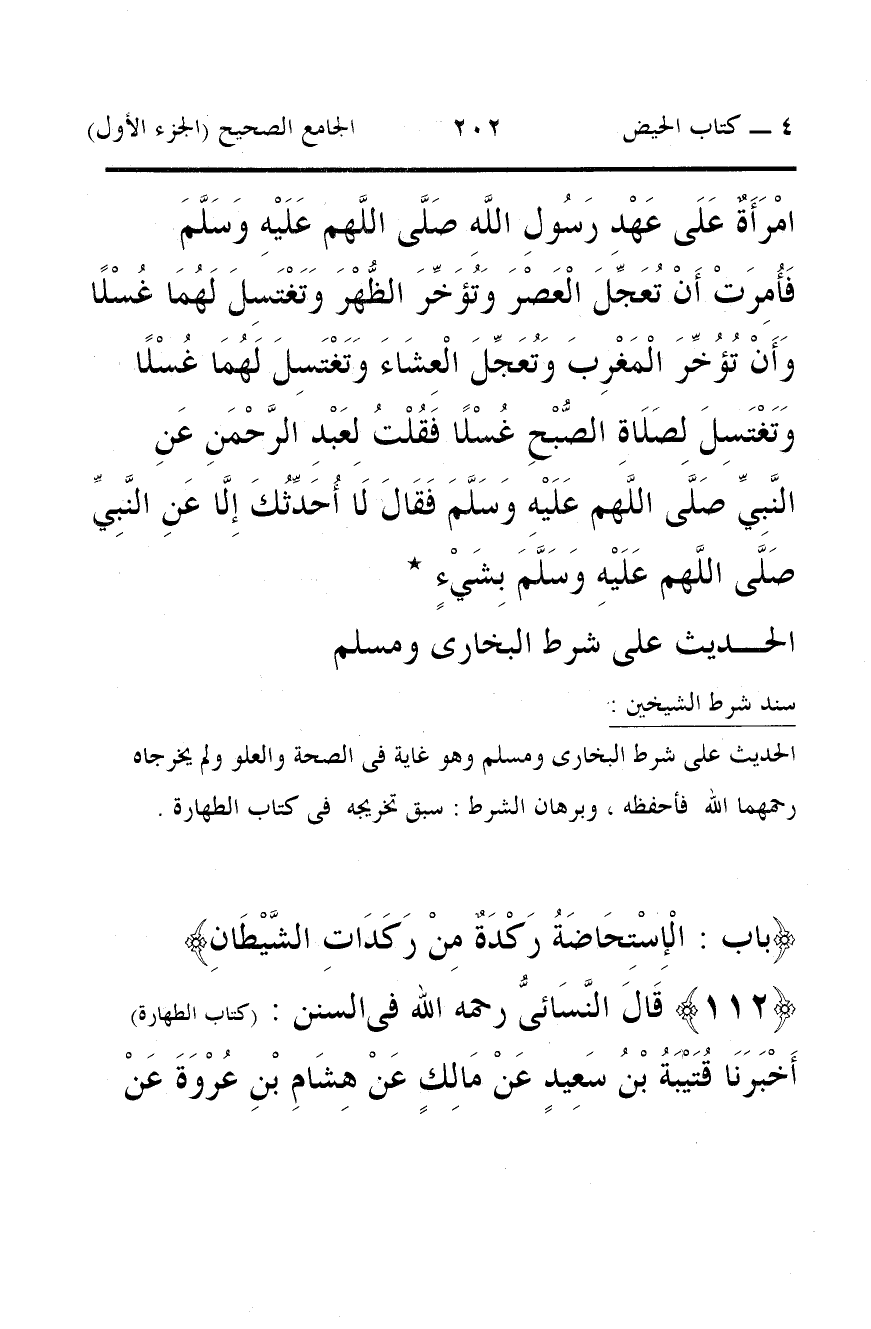 ٤ ــ كتاب الحيض ٢٠٢ الجامع الصحيح (الجزء الأول)
امْرَأَةٌ عَلَى عَهْدِ رَسُولِ اللَّهِ صَلَّى اللَّهم عَلَيْهِ وَسَلَّمَ
فَأُمِرَتْ أَنْ تُعَجِّلَ الْعَصْرَ وَتُؤَخِّرَ الظُّهْرَ وَتَغْتَسِلَ لَهُمَا غُسْلًا
وَأَنْ تُؤَخِّرَ الْمَغْرِبَ وَتُعَجِّلَ الْعِشَاءَ وَتَغْتَسِلَ لَهُمَا غُسْلًا
وَتَغْتَسِلَ لِصَلَاةِ الصُّبْحِ غُسْلًا فَقُلْتُ لِعَبْدِ الرَّحْمَنِ عَنِ
النَّبِيِّ صَلَّى اللَّهم عَلَيْهِ وَسَلَّمَ فَقَالَ لَا أُحَدِّثُكَ إِلَّا عَنِ النَّبِيِّ
صَلَّى اللَّهم عَلَيْهِ وَسَلَّمَ بِشَيْءٍ *
الحـــديث على شرط البخارى ومسلم
سند شرط الشيخين :
الحديث على شرط البخارى ومسلم وهو غاية فى الصحة والعلو ولم يخرجاه
رحمهما الله فأحفظه ، وبرهان الشرط : سبق تخريجه فى كتاب الطهارة .
﴿باب : الْإِسْتِحَاضَةُ رَكْدَةٌ مِنْ رَكَدَاتِ الشَّيْطَانِ﴾
﴿١١٢﴾ قَالَ النَّسَائىُّ رحمه الله فى السنن : (كتاب الطهارة)
أَخْبَرَنَا قُتَيْبَةُ بْنُ سَعِيدٍ عَنْ مَالِكٍ عَنْ هِشَامِ بْنِ عُرْوَةَ عَنْ